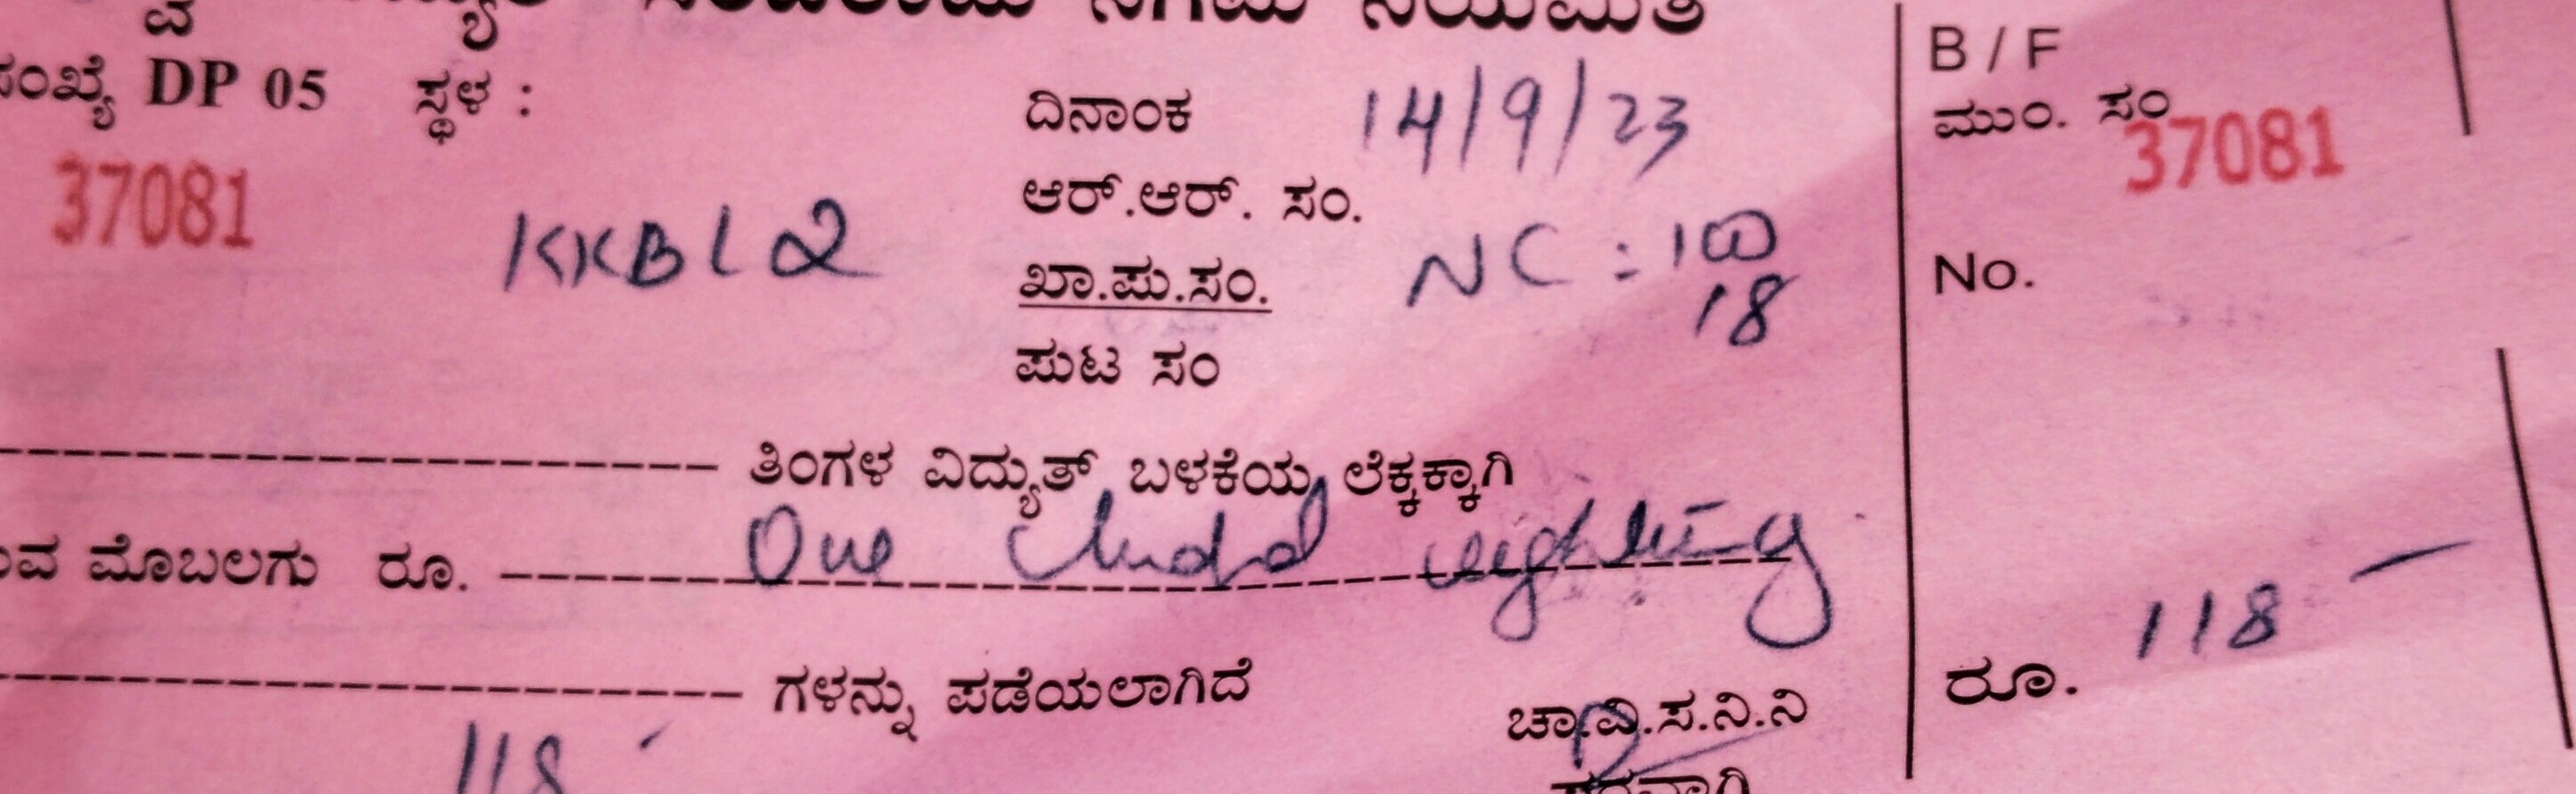 ಸರಬರಾಜು ನಿಗಮ ನಿಯಮಿತ
ಸಂಖ್ಯೆ DP 05 ಸ್ಥಳ :
ದಿನಾಂಕ 14/9/23
B / F
ಮುಂ. ಸಂ
37081
37081
ಆರ್.ಆರ್. ಸಂ.
KKBL2
NC : 100
18
ಖಾ.ಪು.ಸಂ.
No.
ಪುಟ ಸಂ
ತಿಂಗಳ ವಿದ್ಯುತ್ ಬಳಕೆಯ ಲೆಕ್ಕಕ್ಕಾಗಿ
ಮೊಬಲಗು ರೂ. One
ರೂ. 118
ಗಳನ್ನು ಪಡೆಯಲಾಗಿದೆ
118
ಚಾ.ವಿ.ಸ.ನಿ.ನಿ
ಪರವಾಗಿ